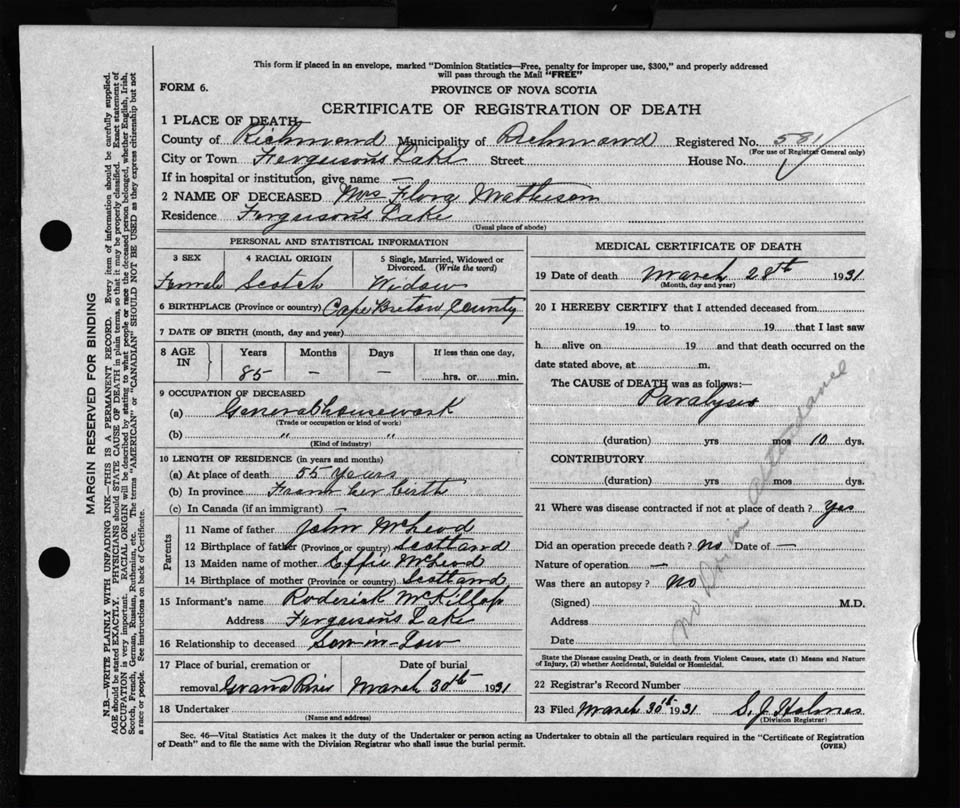 This form if placed in an envelope, marked "Dominion Statistics—Free, penalty for improper use, $300," and properly addressed
will pass through the Mail "FREE"
FORM 6.
PROVINCE OF NOVA SCOTIA
CERTIFICATE OF REGISTRATION OF DEATH
1 PLACE OF DEATH
County of Richmond Municipality of Richmond Registered No. 581
(For use of Registrar General only)
City or Town Ferguson's Lake Street House No.
If in hospital or institution, give name —
2 NAME OF DECEASED Mrs Flora Matheson
Residence Ferguson's Lake
(Usual place of abode)
PERSONAL AND STATISTICAL INFORMATION
3 SEX 4 RACIAL ORIGIN 5 Single, Married, Widowed or
Divorced. (Write the word)
Female Scotch Widow
6 BIRTHPLACE (Province or country) Cape Breton County
7 DATE OF BIRTH (month, day and year)
8 AGE IN Years Months Days If less than one day,
85 — — hrs. or min.
9 OCCUPATION OF DECEASED
(a) General housework
(Trade or occupation or kind of work)
(b) " "
(Kind of industry)
10 LENGTH OF RESIDENCE (in years and months)
(a) At place of death 55 Years
(b) In province From her birth
(c) In Canada (if an immigrant) —
Parents
11 Name of father John McLeod
12 Birthplace of father (Province or country) Scotland
13 Maiden name of mother Effie McLeod
14 Birthplace of mother (Province or country) Scotland
15 Informant's name Roderick McKillop
Address Ferguson's Lake
16 Relationship to deceased Son-in-Law
17 Place of burial, cremation or Date of burial
removal Grand River March 30th 1931
18 Undertaker
(Name and address)
MEDICAL CERTIFICATE OF DEATH
19 Date of death March 28th 1931
(Month, day and year)
20 I HEREBY CERTIFY that I attended deceased from
19 to 19 that I last saw
h alive on 19 and that death occurred on the
date stated above, at m.
The CAUSE of DEATH was as follows:—
Paralysis
(duration) yrs mos 10 dys.
CONTRIBUTORY
(duration) yrs mos dys.
21 Where was disease contracted if not at place of death? Yes
Did an operation precede death? no Date of —
Nature of operation —
Was there an autopsy? No
(Signed) M.D.
Address
Date
No attendance
State the Disease causing Death, or in death from Violent Causes, state (1) Means and Nature
of Injury, (2) whether Accidental, Suicidal or Homicidal.
22 Registrar's Record Number
23 Filed March 30th 1931 S. J. Holmes
(Division Registrar)
Sec. 46—Vital Statistics Act makes it the duty of the Undertaker or person acting as Undertaker to obtain all the particulars required in the "Certificate of Registration
of Death" and to file the same with the Division Registrar who shall issue the burial permit.
(OVER)
MARGIN RESERVED FOR BINDING
N.B.—WRITE PLAINLY WITH UNFADING INK—THIS IS A PERMANENT RECORD. Every item of information should be carefully supplied.
AGE should be stated EXACTLY. PHYSICIANS should STATE CAUSE OF DEATH in plain terms, so that it may be properly classified. Exact statement of
OCCUPATION is very important. RACIAL ORIGIN will be described by stating to what people or race the deceased person belonged, whether English, Irish,
Scotch, French, German, Russian, Ruthenian, etc. The terms "AMERICAN" or "CANADIAN" SHOULD NOT BE USED as they express citizenship but not
a race or people. See instructions on back of Certificate.